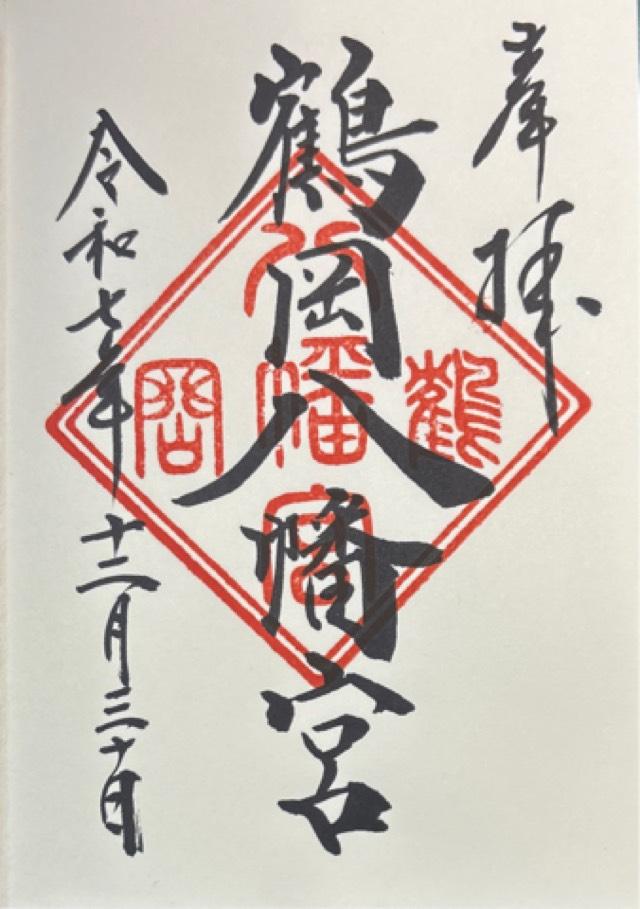 奉拝
鶴岡八幡宮
令和七年十二月三十日
鶴
八幡宮
岡